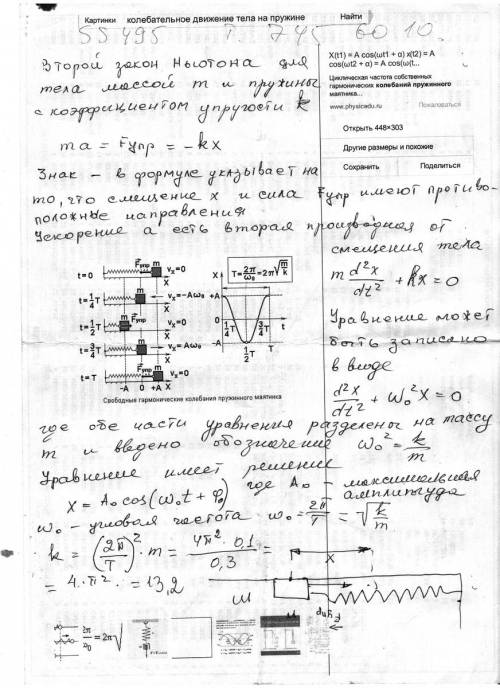 Картинки колебательное движение тела на пружине Найти
SS 495 T. 745 60 10.
X(t1) = A cos(ωt1 + α) x(t2) = A
cos(ωt2 + α) = A cos(ω(t...
Циклическая частота собственных
гармонических колебаний пружинного
маятника...
www.physicedu.ru Пожаловаться
Открыть 448×303
Другие размеры и похожие
Сохранить Поделиться
Второй закон Ньютона для
тела массой m и пружины
с коэффициентом упругости k
ma = Fупр = -kx
Знак - в формуле указывает на
то, что смещение x и сила Fупр имеют противо-
положные направления
Ускорение a есть вторая производная от
смещения тела
m d²x/dt² + kx = 0
Уравнение может
быть записано
в виде
d²x/dt² + ω₀²x = 0
t=0 Fупр m vₓ=0
X
t=1/4 T m vₓ=-Aω₀
X
t=1/2 T Fупр m vₓ=0
X
t=3/4 T m vₓ=Aω₀
X
t=T Fупр m vₓ=0
-A 0 +A X
X T=2π/ω₀=2π√(m/k)
+A
1/4 T 3/4 T t
-A
1/2 T T
Свободные гармонические колебания пружинного маятника
где обе части уравнения разделены на массу
m и введено обозначение ω₀² = k/m
Уравнение имеет решение
X = A₀ cos(ω₀t + φ₀) где A₀ - максимальная
амплитуда
ω₀ - угловая частота ω₀ = 2π/T = √(k/m)
k = (2π/T)² · m = 4π² · 0,1 / 0,3 =
= 4 · π² · = 13,2
X
m
Fупр
2π = 2π√